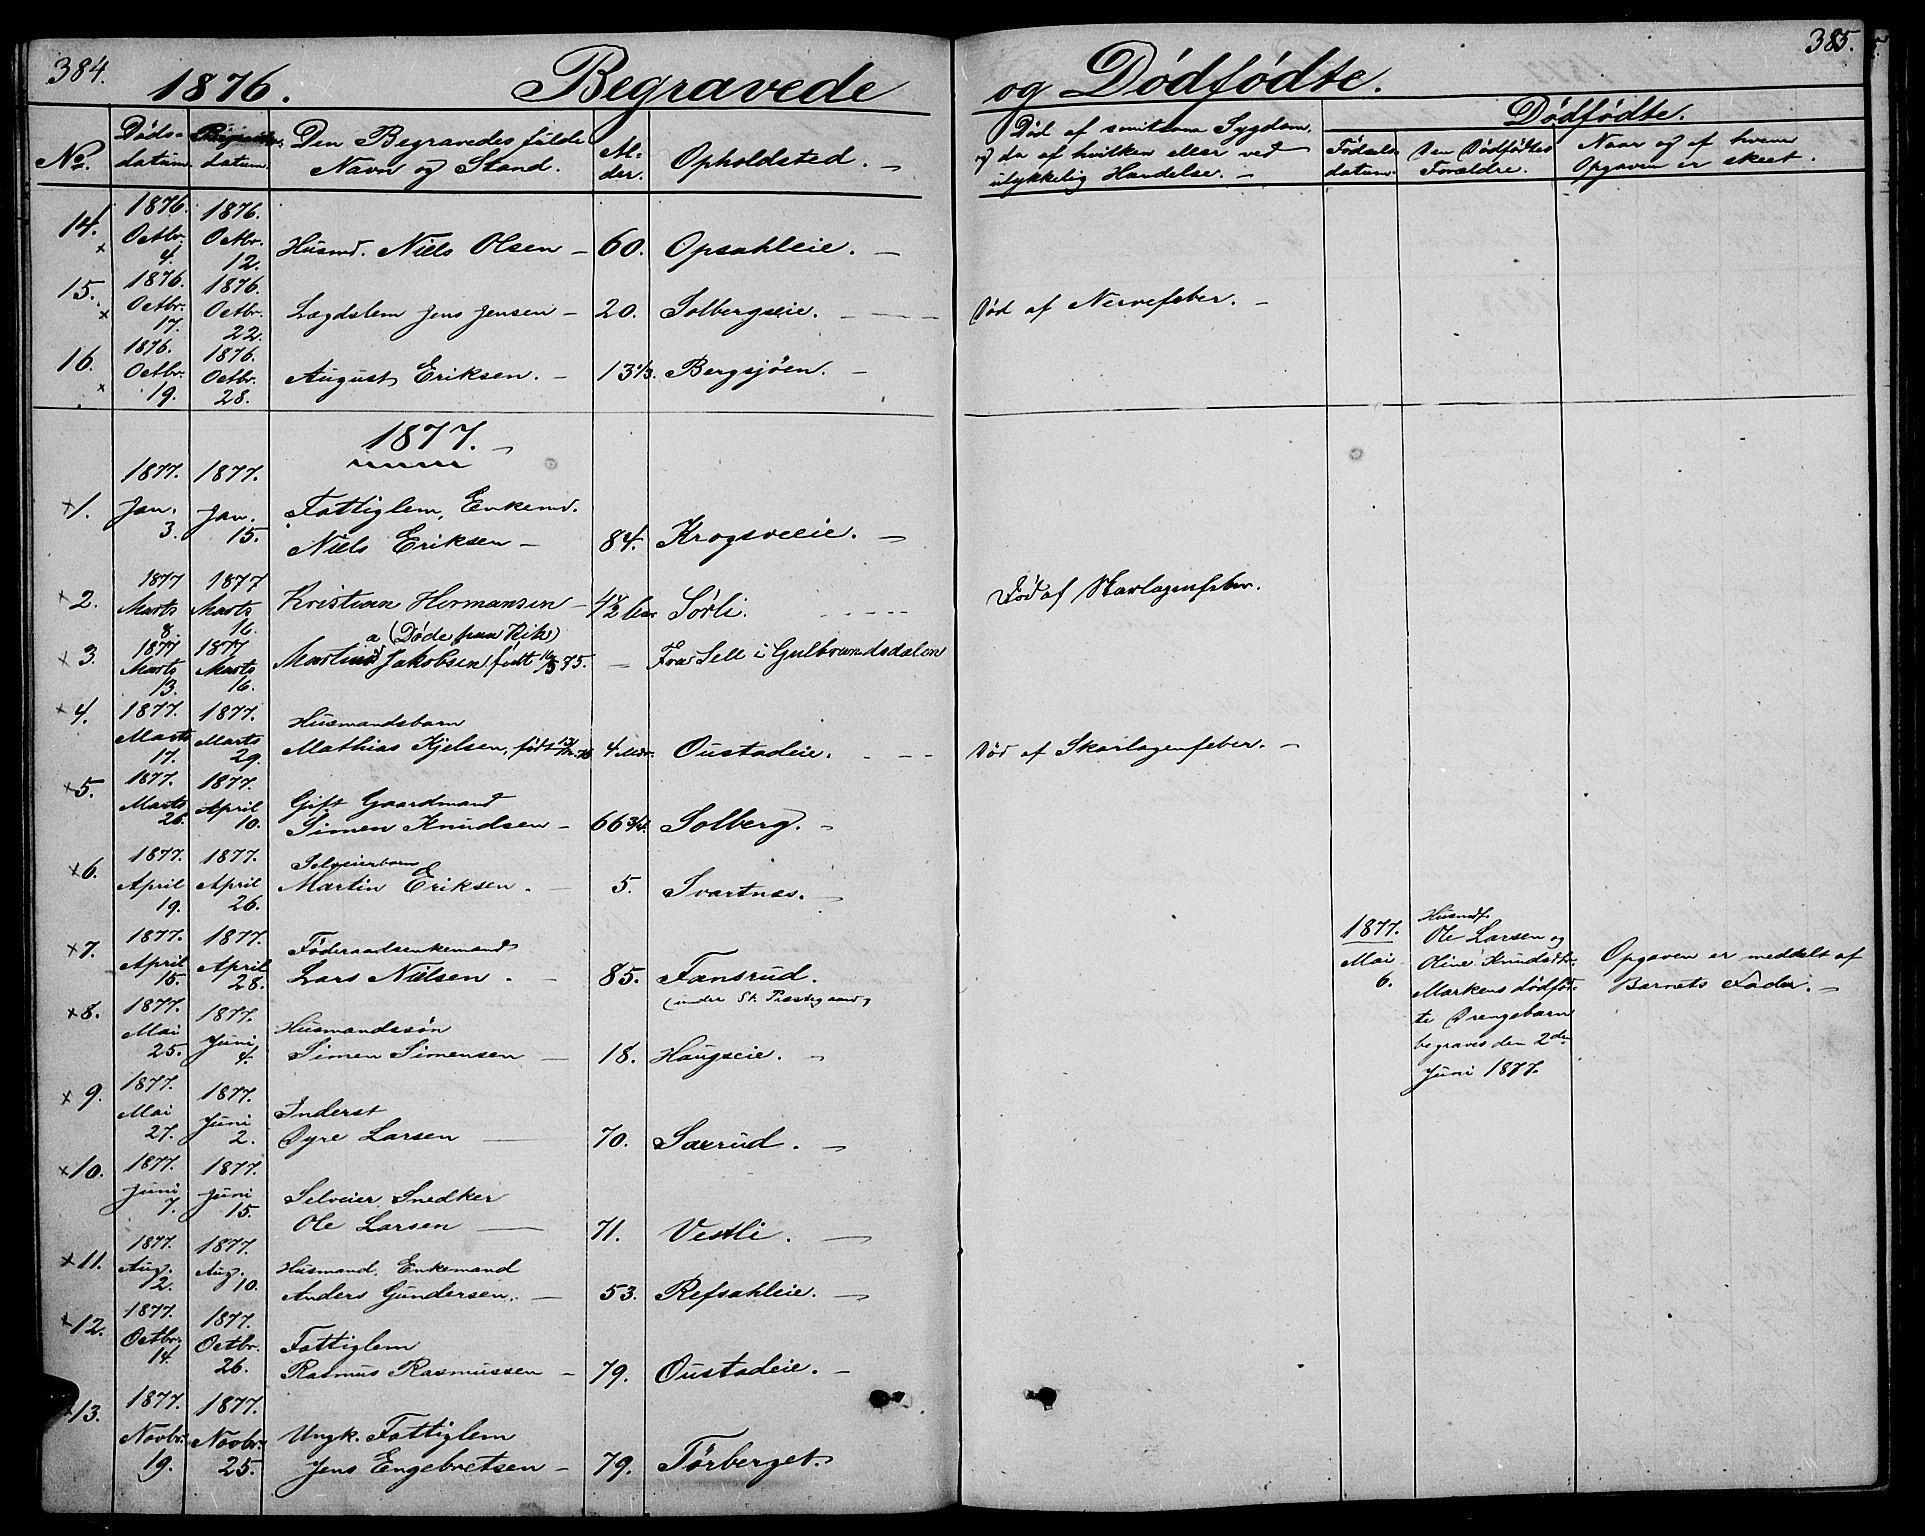 384.
1876.
Begravede
No.
Døds-
datum.
datum.
Den Begravedes fulde
Navn og Stand.
Al-
der.
Opholdsted.
14.
1876.
Octbr.
4.
1876.
Octbr.
12.
Husmd. Niels Olsen - 60. Opsahleie.
15.
1876.
Octbr.
17.
1876.
Octbr.
22.
Lægdslem Jens Jensen - 20. Solbergseie.
16.
1876.
Octbr.
19.
1876.
Octbr.
28.
August Eriksen. - 13 1/3. Bergsjöen.
1877.
1.
1877.
Jan.
3.
1877.
Jan.
15.
Fattiglem, Enkemd.
Niels Eriksen - 84. Krogsveeie.
2.
1877
Marts
8.
1877
Marts
16.
Kristian Hermansen - 4 1/2 Sørli.
3.
1877
Marts
13.
1877
Marts
16.
(Døde paa
Jakobsen født 75. - Fra Sell i Gulbrandsdalen
4.
1877.
Marts
17.
1877.
Marts
29.
Husmandsbarn
Mathias Kjelsen, født 4 Mdr. Oustadeie.
5.
1877.
Marts
26.
1877.
April
10.
Gift Gaardmand
Simen Knudsen - 66 3/4. Solberg.
6.
1877.
April
19.
1877.
April
26.
Selveierbarn
Martin Eriksen. - 5. Svartnæs.
7.
1877.
April
15.
1877.
April
28.
Føderaadsenkemand
Lars Nielsen. - 85. Fansrud.
(under St. Præstegaard)
8.
1877.
Mai
25.
1877.
Juni
4.
Husmandssøn
Simen Simensen - 18. Haugseie.
9.
1877.
Mai
27.
1877.
Juni
2.
Inderst
Dyre Larsen - 70. Saxrud.
10.
1877.
Juni
7.
1877.
Juni
15.
Selveier Snedker
Ole Larsen - 71. Vestli.
11.
1877.
Aug.
2.
1877.
Aug.
10.
Husmand, Enkemand
Anders Gundersen. - 53. Refsahleie.
12.
1877.
Octbr.
14.
1877.
Octbr.
26.
Fattiglem
Rasmus Rasmussen - 79. Oustadeie.
13.
1877.
Novbr.
19.
1877.
Novbr.
25.
Ungk. Fattiglem
Jens Engebretsen - 79. Tørberget.
385.
og Dødfødte.
Død af smitsom Sygdom,
og da af hvilken eller ved
ulykkelig Hændelse.
Dødfødte.
Fødsels
datum.
Den Dødfødtes
Forældre.
Naar og af hvem
Opgaven er skeet.
Død af Nervefeber.
Død af Skarlagensfeber.
Død af Skarlagenfeber.
1877.
Mai
6.
Husmdf.
Ole Larsen og
Oline Knudsdtr.
Markens dødfød-
te Drengebarn
begraves den 2den
Juni 1877.
Opgaven er meddelt af
Barnets Fader.